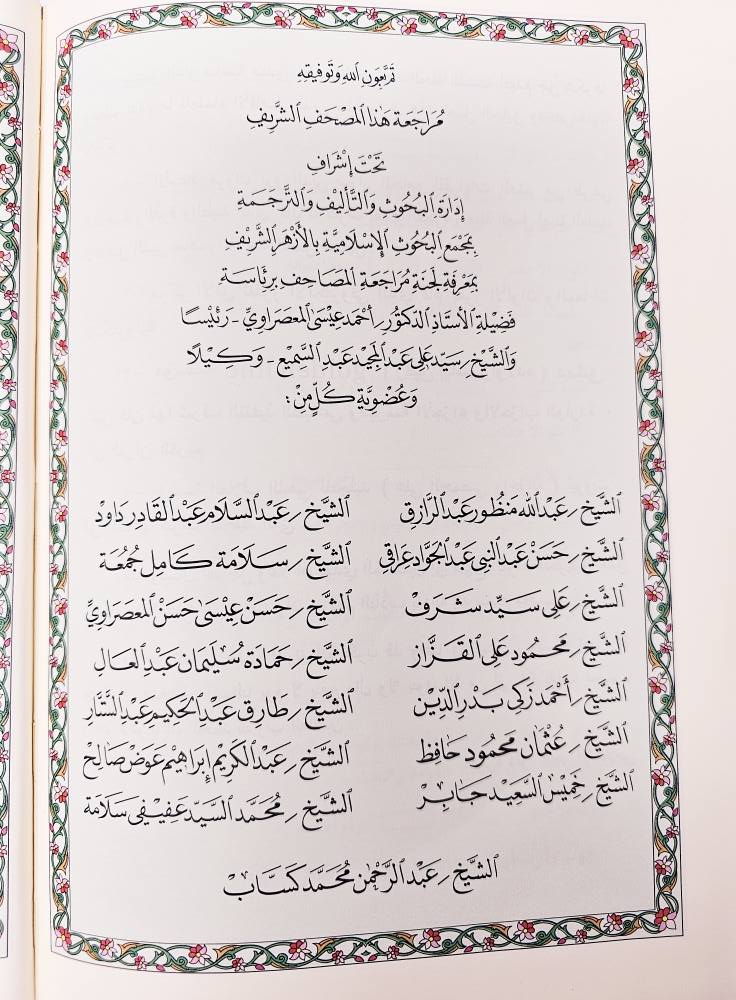 تَمَّ بِعَوْنِ اللهِ وَتَوْفِيقِهِ
مُرَاجَعَة هَٰذَا المُصْحَفِ الشَّرِيفِ
تَحْتَ إِشْرَافِ
إِدَارَةِ البُحُوثِ وَالتَّأْلِيفِ وَالتَّرْجَمَةِ
بِمَجْمَعِ البُحُوثِ الإِسْلَامِيَّةِ بِالأَزْهَرِ الشَّرِيفِ
بِمَعْرِفَةِ لَجْنَةِ مُرَاجَعَةِ المَصَاحِفِ بِرِئَاسَةِ
فَضِيلَةِ الأُسْتَاذِ الدُّكْتُورِ / أَحْمَد عِيسَىٰ المَعْصَرَاوِيّ - رَئِيْسًا
وَالشَّيْخِ / سَيِّد عَلِي عَبْد المَجِيد عَبْد السَّمِيع - وَكِيْلًا
وَعُضْوِيَّةِ كُلٍّ مِنْ :
الشَّيْخ / عَبْد الله مَنْظُور عَبْد الرَّازِق الشَّيْخ / عَبْد السَّلَام عَبْد القَادِر دَاوُد
الشَّيْخ / حَسَنْ عَبْد النَّبِي عَبْد الجَوَّاد عِرَاقِي الشَّيْخ / سَلَامَة كَامِل جُمُعَة
الشَّيْخ / عَلِي سَيِّد شَرَفْ الشَّيْخ / حَسَنْ عِيْسَىٰ حَسَنْ المَعْصَرَاوِيّ
الشَّيْخ / مَحْمُود عَلِي القَزَّاز الشَّيْخ / حَمَادَة سُلَيْمَان عَبْد العَال
الشَّيْخ / أَحْمَد زَكِي بَدْر الدِّيْن الشَّيْخ / طَارِق عَبْد الحَكِيم عَبْد السَّتَّار
الشَّيْخ / عُثْمَان مَحْمُود حَافِظ الشَّيْخ / عَبْد الكَرِيْم إِبْرَاهِيْم عَوَض صَالِح
الشَّيْخ / خَمِيْس السَّعِيْد جَابِر الشَّيْخ / مُحَمَّد السَّيِّد عَفِيْفِي سَلَامَة
الشَّيْخ / عَبْد الرَّحْمٰن مُحَمَّد كَسَّاب